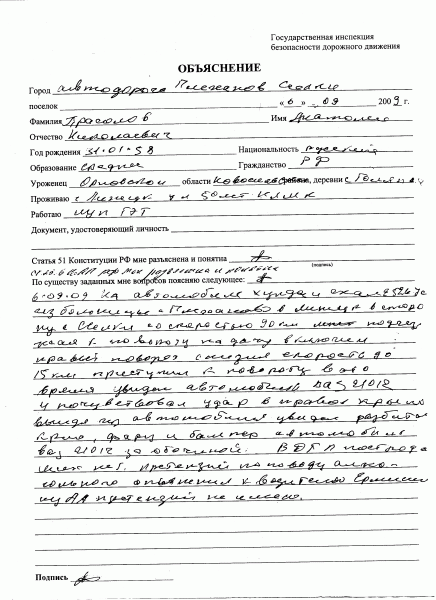 Государственная инспекция
безопасности дорожного движения
ОБЪЯСНЕНИЕ
Город автодорога Плеханов Сселки
поселок « 6 » 09 2009 г.
Фамилия Прасолов Имя Анатолий
Отчество Николаевич
Год рождения 31.01.58 Национальность русский
Образование среднее Гражданство РФ
Уроженец Орловской области района, деревни с
Проживаю г Липецк ул 50 лет НЛМК
Работаю ГЭТ
Документ, удостоверяющий личность
Статья 51 Конституции РФ мне разъяснена и понятна
(подпись)
мне разъяснена и понятна
По существу заданных мне вопросов поясняю следующее:
6.09.09 На автомобиле хундай
из больницы с Плеханово в Липецк в сторо
ну с Сселки со скоростью 90 км подъез
жая к повороту на дачу включил
правый поворот снизив скорость до
15 км приступил к повороту в это
время увидел автомобиль ВАЗ 21012
и почувствовал удар в правое крыло
выйдя из автомобиля увидел разбитое
крыло, фару и бампер автомобиль
ваз 21012 за обочиной. В ДТП построда
вших нет. Претензий по поводу алко-
гольного опьянения к водителю
АА претензий не имею.
Подпись